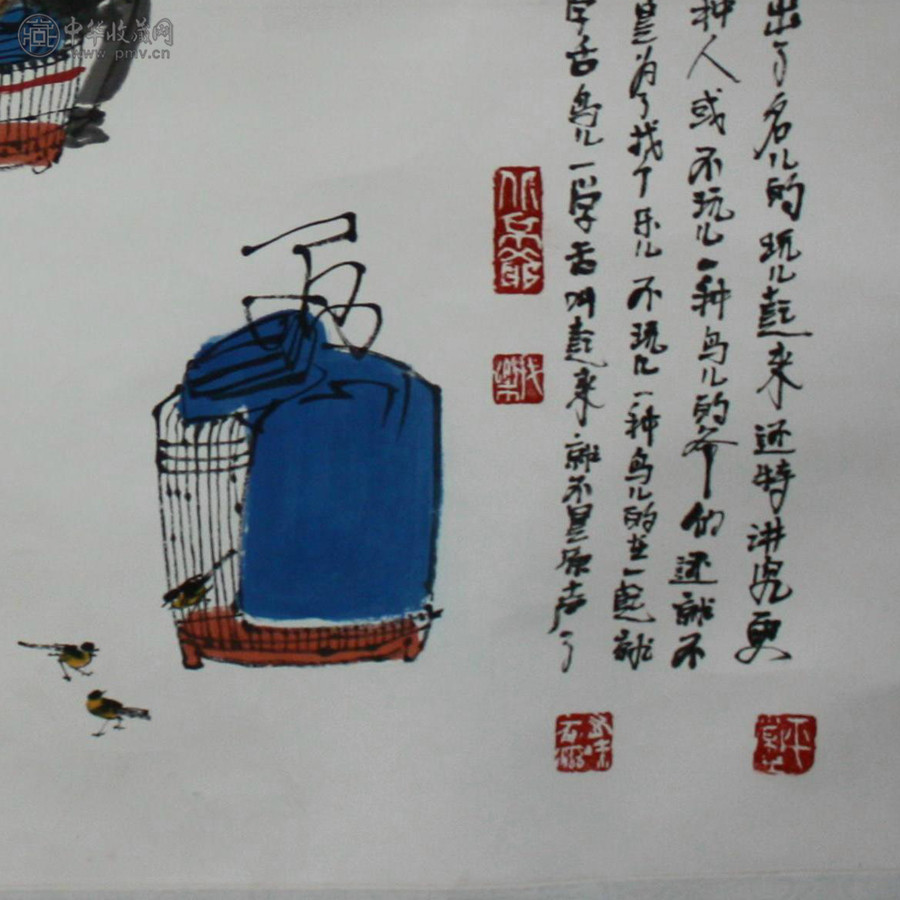 中华收藏网
www.pmv.cn
出了名儿的玩儿起来还特讲究更
种人或不玩儿一种鸟儿的爷们还就不
是为了找个乐儿不玩儿一种鸟儿的在一亮就
学舌鸟儿一学舌叫起来就不是原声了
找乐